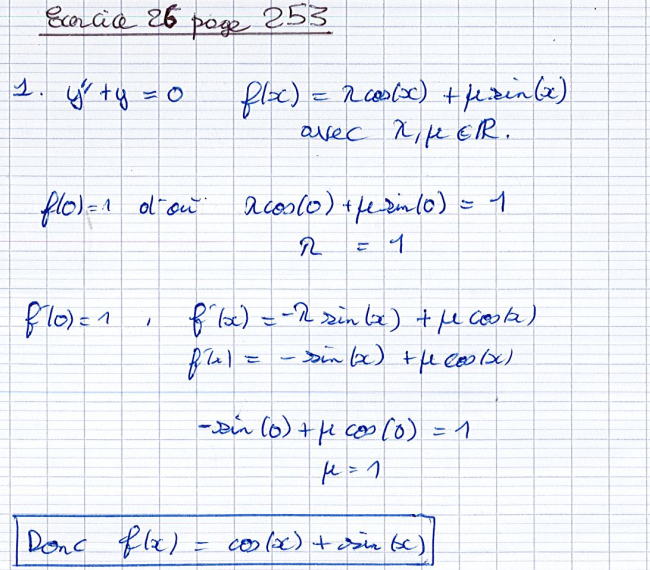 Exercice 26 page 253
1. y'' + y = 0 f(x) = λcos(x) + μ sin(x)
avec λ, μ ∈ ℝ.
f(0) = 1 d'où λcos(0) + μ sin(0) = 1
λ = 1
f'(0) = 1, f'(x) = -λ sin(x) + μ cos(x)
f'(x) = - sin(x) + μ cos(x)
-sin(0) + μ cos(0) = 1
μ = 1
Donc f(x) = cos(x) + sin(x)